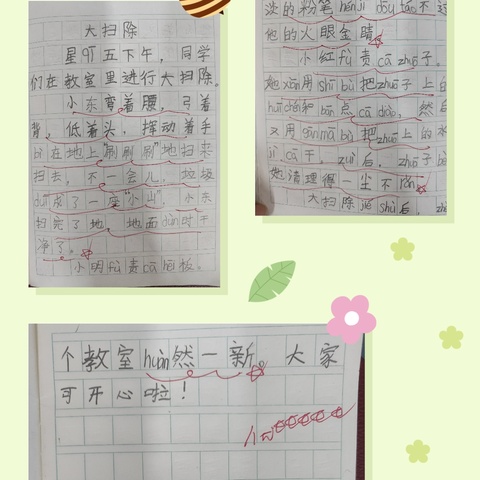 大扫除
星叭五下午，同学
们在教室里进行大扫除。
小东弯着腰，弓着
背，低着头，挥动着手
bì在地上“刷刷刷”地扫来
扫去，不一会儿，垃圾
duī成了一座“小山”。小东
扫完了地，地面dùn时干
净了。
小明fù责cā hēi板。
淡的粉笔hén jì dōu táo不过
他的火眼金睛。
小红fù责cā zhuō子。
她xiān用shī bù把zhuō子上
和bān点cā
又用gān mā bù把zhuō上的水
jì cā干，zuì后，zhuō子
她清理得一尘不rǎn。
大扫除jié shù后，
个教室huàn然一新。大家
可开心啦！